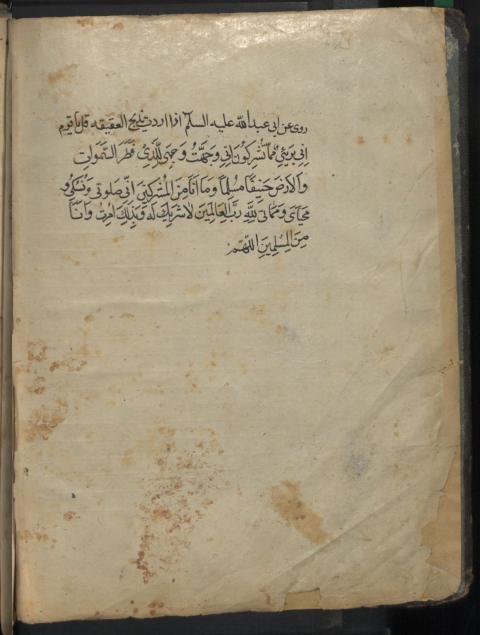 روى عن ابى عبد الله عليه السلم اذا اردت ذبح العقيقه قل يا قوم
اِنى بَرِىٌٔ مِمّا تُشرِكُونَ اِنى وَجَّهتُ وَجهِىَ لِلَّذِى فَطَرَ السَّمٰواتِ
وَالاَرضَ حَنِيفًا مُسلِمًا وَمَا اَنَا مِنَ المُشرِكِينَ اِنَّ صَلوتى وَنُسُكى وَ
مَحيَاىَ وَمَمَاتى لِلّٰهِ رَبِّ العَالَمِينَ لاَشَرِيكَ لَهُ وَبِذٰلِكَ اُمِرتُ وَاَنَا
مِنَ المُسلِمِينَ اللّٰهُمَّ